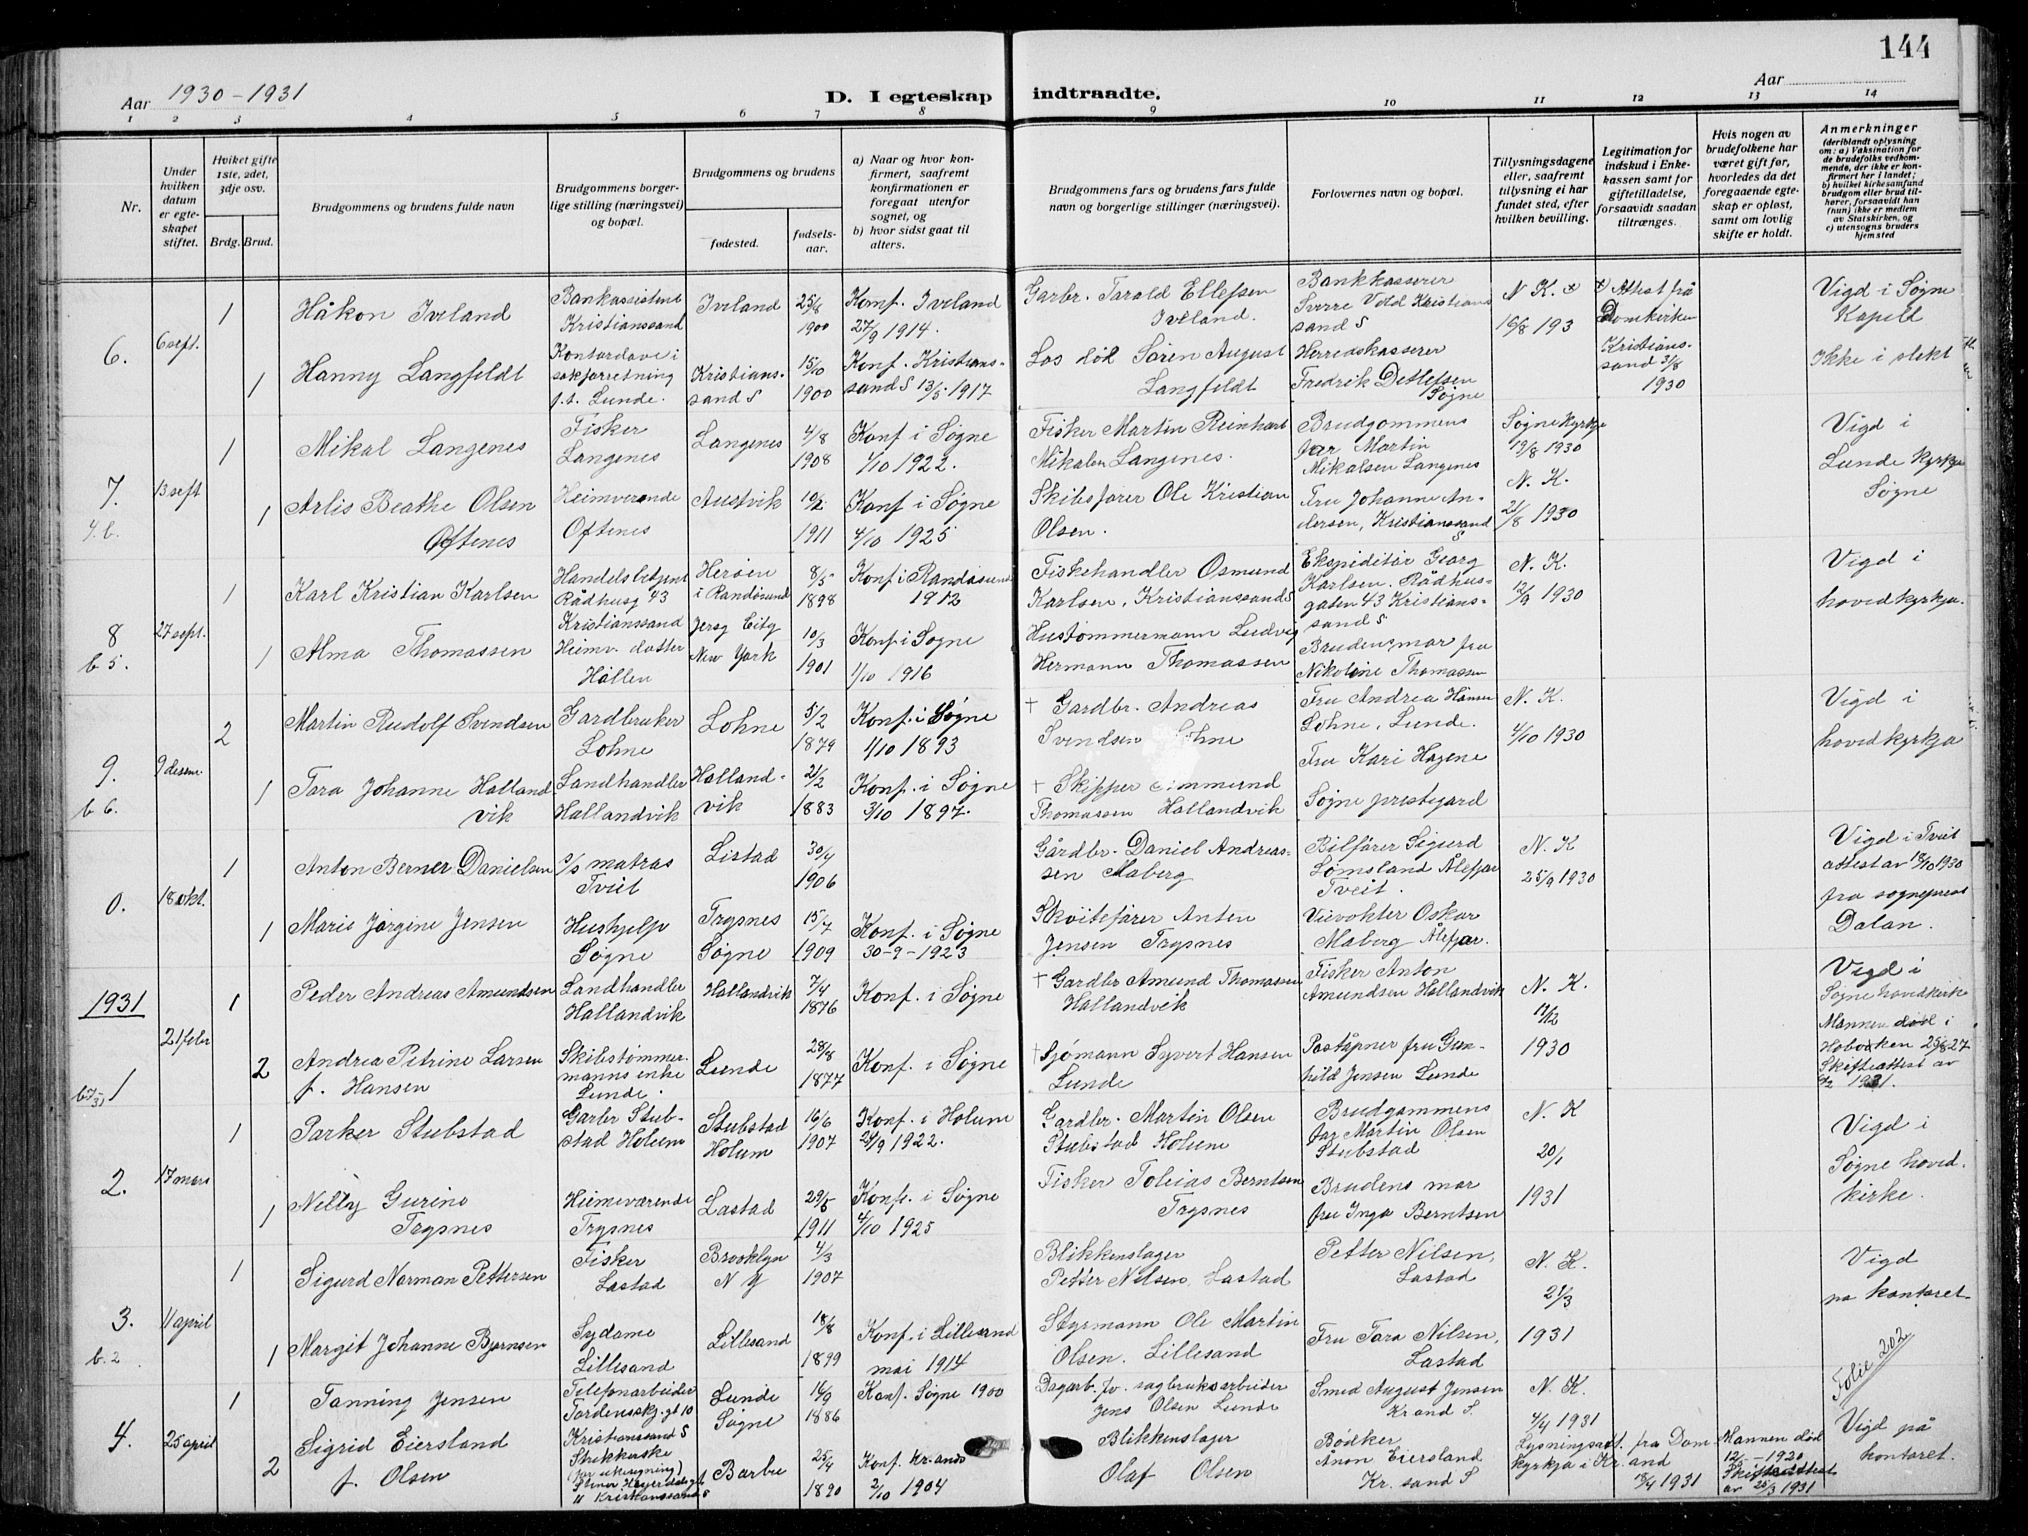 144
Aar 1930-1931
D. I egteskap
indtraadte.
Aar
1 2 3 4 5 6 7 8 9 10 11 12 13 14
Nr.
Under hvilken datum er egteskapet stiftet.
Hvilket gifte 1ste, 2det, 3dje osv.
Brdg. Brud.
Brudgommens og brudens fulde navn
Brudgommens borgerlige stilling (næringsvei) og bopæl.
Brudgommens og brudens
fødested.
fødselsaar.
a) Naar og hvor konfirmert, saafremt konfirmationen er foregaat utenfor sognet, og
b) hvor sidst gaat til alters.
Brudgommens fars og brudens fars fulde navn og borgerlige stillinger (næringsvei).
Forlovernes navn og bopæl.
Tillysningsdagene eller, saafremt tillysning ei har fundet sted, efter hvilken bevilling.
Legitimation for indskud i Enkekassen samt for giftetilladelse, forsaavidt saadan tiltrænges.
Hvis nogen av brudefolkene har været gift før, hvorledes da det foregaaende egteskap er opløst, samt om lovlig skifte er holdt.
Anmerkninger
(deriblandt oplysning om: a) Vaksination for de brudefolks vedkommende, der ikke er konfirmert her i landet; b) hvilket kirkesamfund brudgom eller brud tilhører, forsaavidt han (hun) ikke er medlem av Statskirken, og c) utensogns bruders hjemsted
6. 6 sept.
1 Håkon Iveland
Bankassistent Kristianssand
Iveland
25/8 1900
Konf. Iveland 27/9 1914.
Garbr. Tarald Ellefsen Iveland.
Bankkasserer Sverre Vold Kristianssand S
N. K.
16/8 193
Attest frå Domkirken Kristianssand 3/8 1930
Vigd i Søgne Kapell
Ikke i slekt
1 Hanny Langfeldt
Kontordame i sakførretning f.t. Lunde.
Kristianssand S
15/10 1900
Konf. Kristianssand S 13/5 1917
Los död Sören August Langfeldt
Herredskasserer Fredrik Detlefsen Søgne
7. 13 sept
4. b.
1 Mikal Langenes
Fisker Langenes
Langenes
4/8 1908
Konf i Søgne 1/10 1922.
Fisker Martin Reinhart Mikalsen Langenes.
Brudgommens far Martin Mikalsen Langenes
Søgne Kyrkje 19/8 1930
Vigd i Lunde kyrkje Søgne
1 Arlis Beathe Olsen Oftenes
Heimverande Oftenes
Austvik
10/2 1911
Konf i Søgne 4/10 1925
Skibsfører Ole Kristian Olsen.
Fru Johanne Andersen, Kristianssand S
N. K. 21/8 1930
8 27 sept.
b 5.
1 Karl Kristian Karlsen
Handelsbetjent Rådhusg 43 Kristianssand
Herøen i Randøsund
8/5 1898
Konf i Randøsund 1912
Fiskehandler Osmund Karlsen, Kristianssand S
Ekspeditör Georg Karlsen. Rådhusgaten 43 Kristianssand S
N. K. 12/9 1930
Vigd i hovedkyrkja.
1 Alma Thomassen
Heimv. datter Höllen
Jersy City New York
10/3 1901
Konf. i Søgne 1/10 1916
Hustømmermann Ludvig Hermann Thomassen
Brudens mor fru Nikoline Thomassen
9. 9 desem.
b 6.
2 Martin Rudolf Svendsen
Gardbruker Lohne
Lohne
5/2 1879
Konf. i Søgne 1/10 1893
† Gardbr. Andreas Svendsen Lohne
Fru Andrea Hansen Lohne, Lunde.
N. K. 4/10 1930
Vigd i hovedkyrkja
1 Tara Johanne Hallandvik
Landhandler Hallandvik
Hallandvik
21/2 1883
Konf. i Søgne 3/10 1897.
† Skipper Ommund Thomassen Hallandvik
Fru Kari Hagene Søgne prestegard
0. 18 okt.
1 Anton Berner Danielsen
s/s matros Tveit
Listad
30/4 1906
Gårdbr. Daniel Andreassen Moberg
Bilfører Sigurd Lømsland Ålefjær Tveit.
N. K 25/9 1930
Vigd i Tveit attest av 18/10 1930 fra sogneprest Dalan.
1 Maris Jørgine Jensen
Hushjelp Søgne
Trysnes Søgne
15/7 1909
Konf. i Søgne 30-9-1923
Skøitefører Anton Jensen Trysnes
Veivokter Oskar Moberg Ålefjær.
1931
21 febr
b 7/31 1
1 Peder Andreas Amundsen
Landhandler Hallandvik
Hallandvik
7/4 1876
Konf. i Søgne
† Gardbr Amund Thomassen Hallandvik
Fisker Anton Amundsen Hallandvik
N. K. 17/12 1930
Vigd i Søgne hovedkirke
Mannen död i Hoboken 25/8 27
Skifteattest av 1931.
2 Andrea Petrine Larsen f. Hansen
Skibstømmermanns enke Lunde.
Lunde
28/8 1877
Konf. i Søgne
† Sjømann Syvert Hansen Lunde
Poståpner fru Gunhild Jensen Lunde
2. 17 mars
1 Parker Stubstad
Garbr Stubstad Holum
Stubstad Holum
16/6 1907
Konf. i Holum 24/9 1922.
Gardbr. Martin Olsen Stubstad Holum
Brudgommens far Martin Olsen Stubstad
N. K 20/1 1931
Vigd i Søgne hovedkirke.
1 Nelly Gurine Trysnes
Hiemeværende Trysnes
Lastad
29/5 1911
Konf. i Søgne 4/10 1925
Fisker Tobias Berntsen Trysnes
Brudens mor fru Inga Berntsen
3. 11 april
b. 2
1 Sigurd Norman Pettersen
Fisker Lastad
Brooklyn N Y
4/3 1907
Blikkenslager Petter Nilsen, Lastad
Petter Nilsen, Lastad
N. K. 21/3 1931
Vigd på kontoret
1 Margit Johanne Bjørnsen
Sydame Lillesand
Lillesand
18/8 1899
Konf. i Lillesand mai 1914
Styrmann Ole Martin Olsen. Lillesand
Fru Tara Nilsen, Lastad
Folie 202
4. 25 april
1 Tanning Jensen
Telefonarbeider Tordenskj. gt 10 Kristianssand S
Lunde Søgne
16/9 1886
Konf. Søgne 1900
Dagarb. fv. sagbruksarbeider Jens Olsen Lunde
Smed August Jensen Kr.and S.
N. K. 4/4 1931
Vigd på kontoret.
2 Sigrid Eiersland f. Olsen
Kristianssand S
Barbu
25/4 1890
Konf. Kr.ands 2/10 1904
Blikkenslager Olaf Olsen
Bødker Anon Eiersland Kr.sand S
Lysningsatt. fra Domkyrkja i Kr.and 18/4 1931
Mannen död 12/5-1920
Skifteattest av 25/3 1931